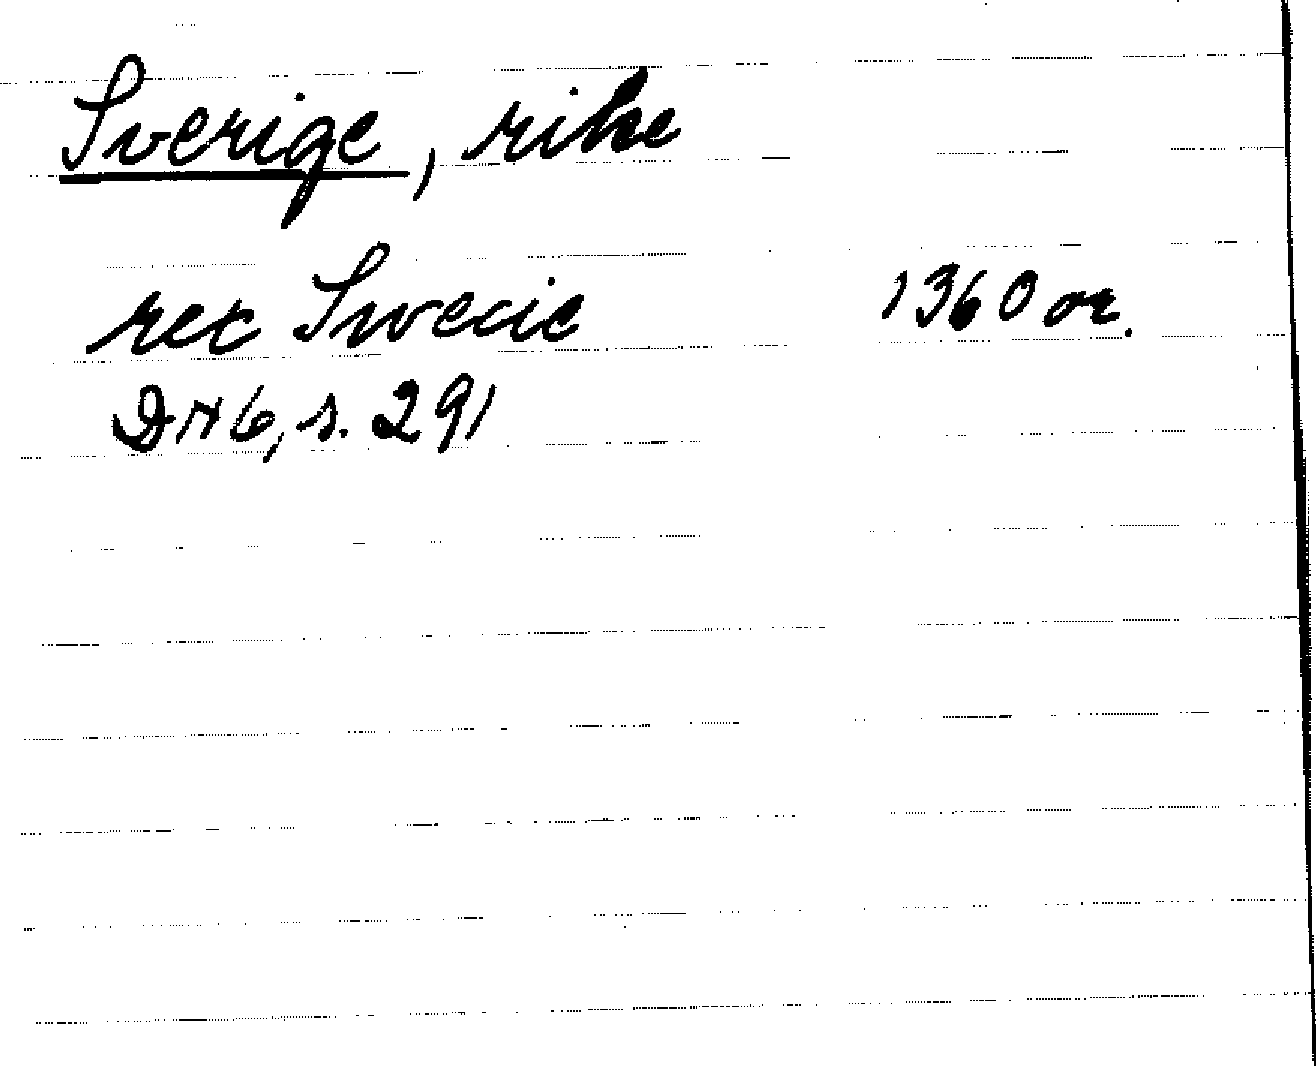 Sverige, rike
rex Swecie 1360 or.
DN 6, s. 291